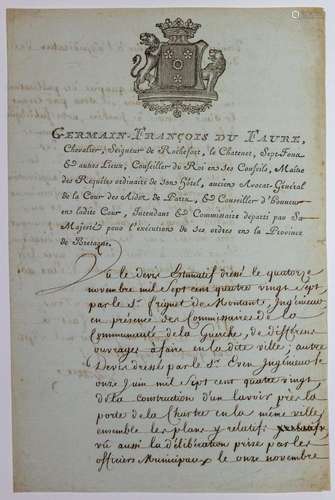 GERMAIN-FRANÇOIS DU FAURE,
Chevalier, Seigneur de Rochefort, le Chatenet, Sept-Fons
& autres Lieux, Conseiller du Roi en ses Conseils, Maître
des Requêtes ordinaire de son Hôtel, ancien Avocat-Général
de la Cour des Aides de Paris, & Conseiller d'honneur
en ladite Cour, Intendant & Commissaire départi par Sa
Majesté pour l'exécution de ses ordres en la Province
de Bretagne.
Vu le devis Estimatif dressé le quatorze
novembre mil sept cent quatre vingt sept
par le Sr. Frignet de Montaut, Ingénieur
en présence des Commissaires de la
Communauté de la Guerche, de differens
ouvrages à faire en la dite ville; autre
Devis dressé par le Sr. Even Ingénieur le
onze Juin mil sept cent quatre vingt
de la construction d'un lavoir près la
porte de la Chartre en la même ville
ensemble les plans y relatifs
vû aussi la déliberation prise par les
officiers Municipaux le onze novembre